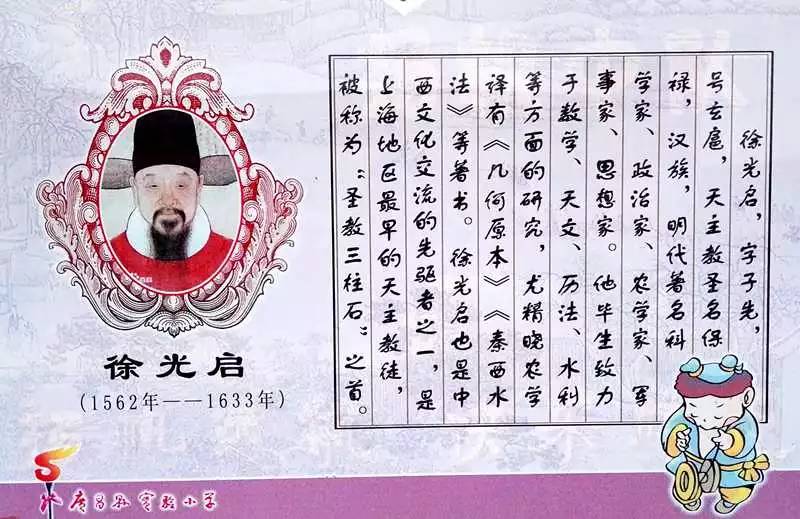 徐光启
(1562年——1633年)
徐光启，字子先，
号玄扈，天主教圣名保
禄，汉族，明代著名科
学家、政治家、农学家、军
事家、思想家。他毕生致力
于数学、天文、历法、水利
等方面的研究，尤精晓农学
译有《几何原本》《秦西水
法》等著书。徐光启也是中
西文化交流的先驱者之一，是
上海地区最早的天主教徒，
被称为“圣教三柱石”之首。
广昌县实验小学